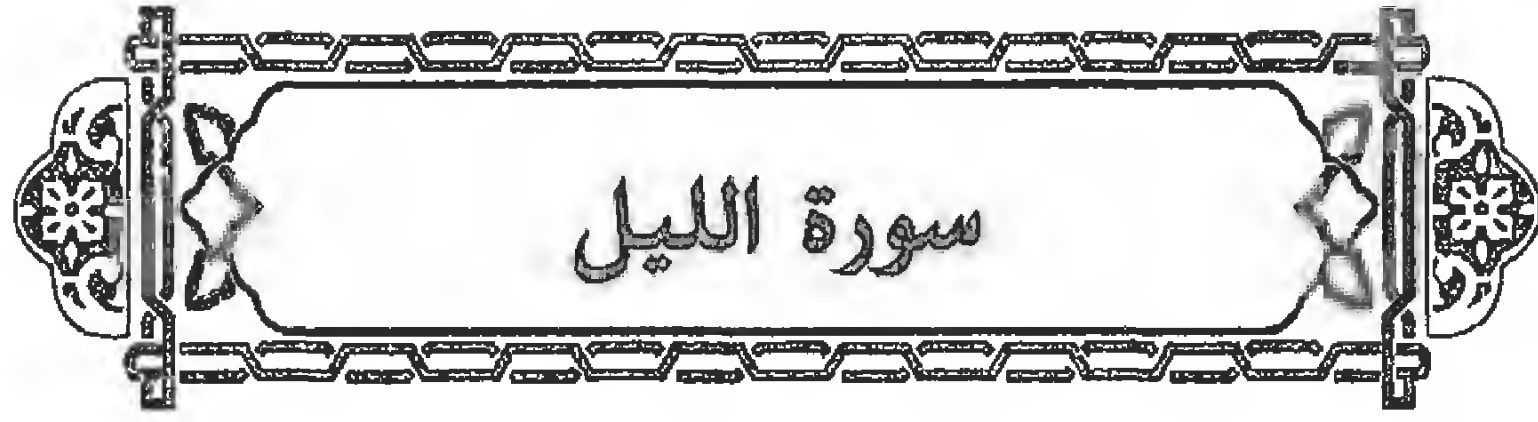 سورة الليل